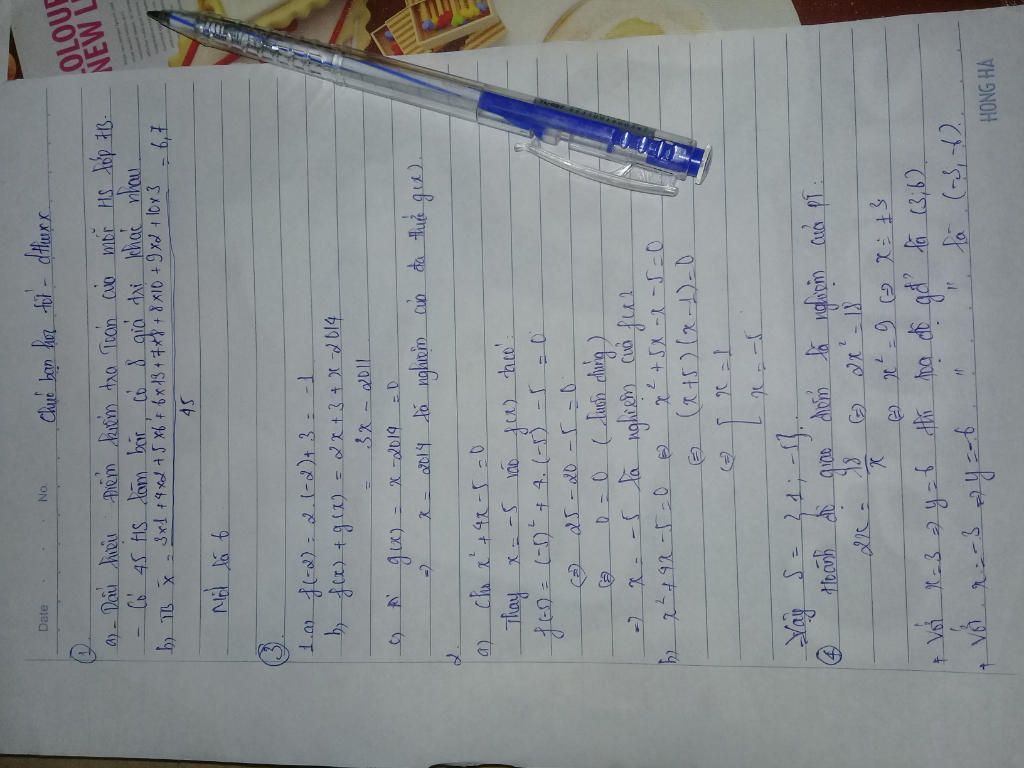 COLOUR
NEW L
Date No.
Chúc bạn học tốt - dthwx
①
a) - Dấu hiệu: Điểm kiểm tra Toán của mỗi HS lớp 7B.
- Có 45 HS làm bài có 8 giá trị khác nhau
b) TB x̄ = 3x1 + 4x2 + 5x6 + 6x13 + 7x8 + 8x10 + 9x2 + 10x3 = 6,7
45
Mốt là 6
③
1. a) f(-2) = 2.(-2) + 3 = -1
b) f(x) + g(x) = 2x + 3 + x - 2014
= 3x - 2011
c) g(x) = x - 2014 = 0
=> x = 2014 là nghiệm của đa thức g(x).
2.
a) Cho x² + 4x - 5 = 0
Thay x = -5 vào f(x) ta có:
f(-5) = (-5)² + 4.(-5) - 5 = 0
⇔ 25 - 20 - 5 = 0
⇔ 0 = 0 (luôn đúng)
=> x = -5 là nghiệm của f(x)
b) x² + 4x - 5 = 0 ⇔ x² + 5x - x - 5 = 0
⇔ (x+5)(x-1) = 0
⇔ [ x = 1
x = -5
=> Vậy S = {1; -5}.
④ Hoành độ giao điểm là nghiệm của PT:
2x = 18/x ⇔ 2x² = 18
⇔ x² = 9 ⇔ x = ±3
+ Với x = 3 => y = 6 thì tọa độ gđ² là (3,6)
+ Với x = -3 => y = -6 " " là (-3,-6).
HONG HA